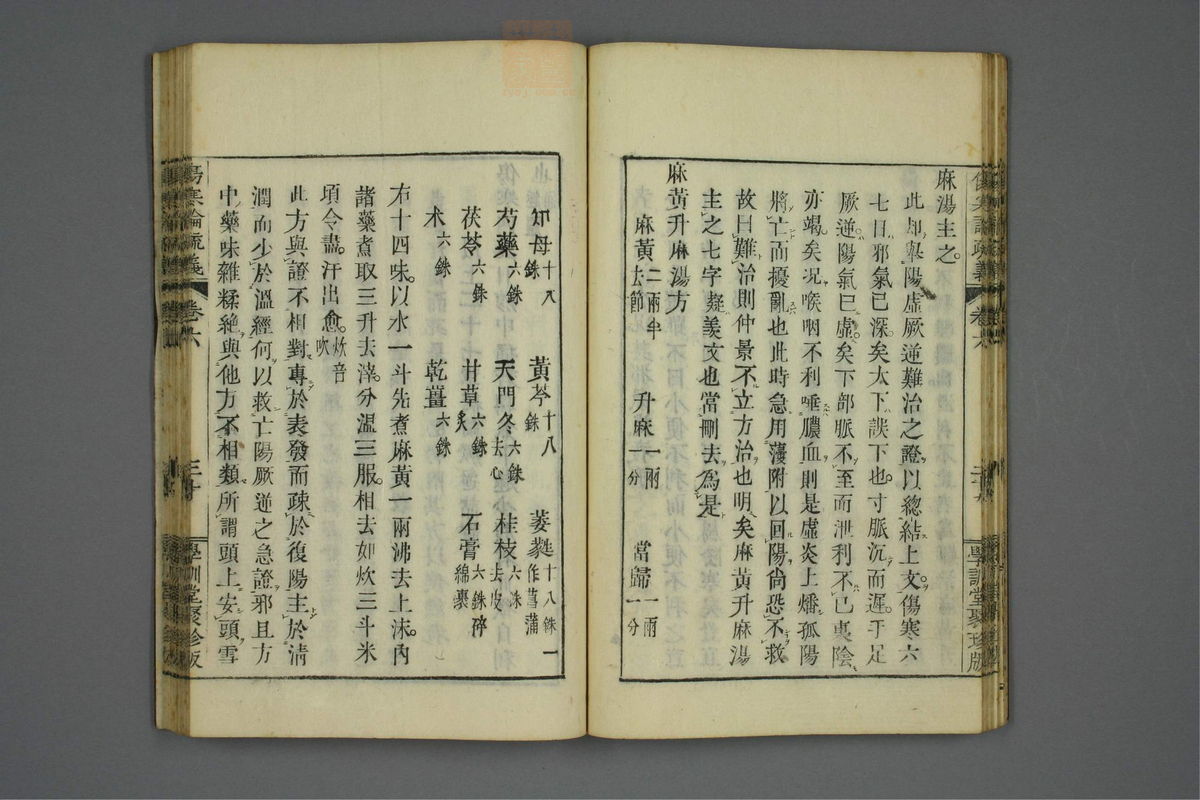 麻湯主之。
此却舉陽虛厥逆難治之證以總結上文。傷寒六
七日邪氣已深矣大下誤下也。寸脈沉而遲。手足
厥逆陽氣已虛矣下部脈不至而泄利不已裏陰
亦竭矣况喉咽不利唾膿血則是虛炎上燔孤陽
將亡而擾亂也此時急用薑附以回陽尚恐不救
故曰難治則仲景不立方治也明矣麻黃升麻湯
主之七字疑羨文也當刪去爲是
麻黃升麻湯方
麻黃二兩半去節 升麻一兩一分 當歸一兩一分
傷寒論疏義 卷六 學訓堂聚珍版
知母十八銖 黃芩十八銖 萎蕤十八銖一作菖蒲
芍藥六銖 天門冬六銖去心 桂枝六銖去皮
茯苓六銖 甘草六銖炙 石膏六銖碎綿裹
朮六銖 乾薑六銖
右十四味。以水一斗先煮麻黃一兩沸去上沫。內
諸藥煮取三升去滓。分溫三服。相去如炊三斗米
頃令盡。汗出愈。炊音吹
此方與證不相對專於表發而疎於復陽主於清
潤而少於溫經何以救亡陽厥逆之急證邪且方
中藥味雜糅絶與他方不相類所謂頭上安頭雪
傷寒論疏義 卷六 三十 學訓堂聚珍版